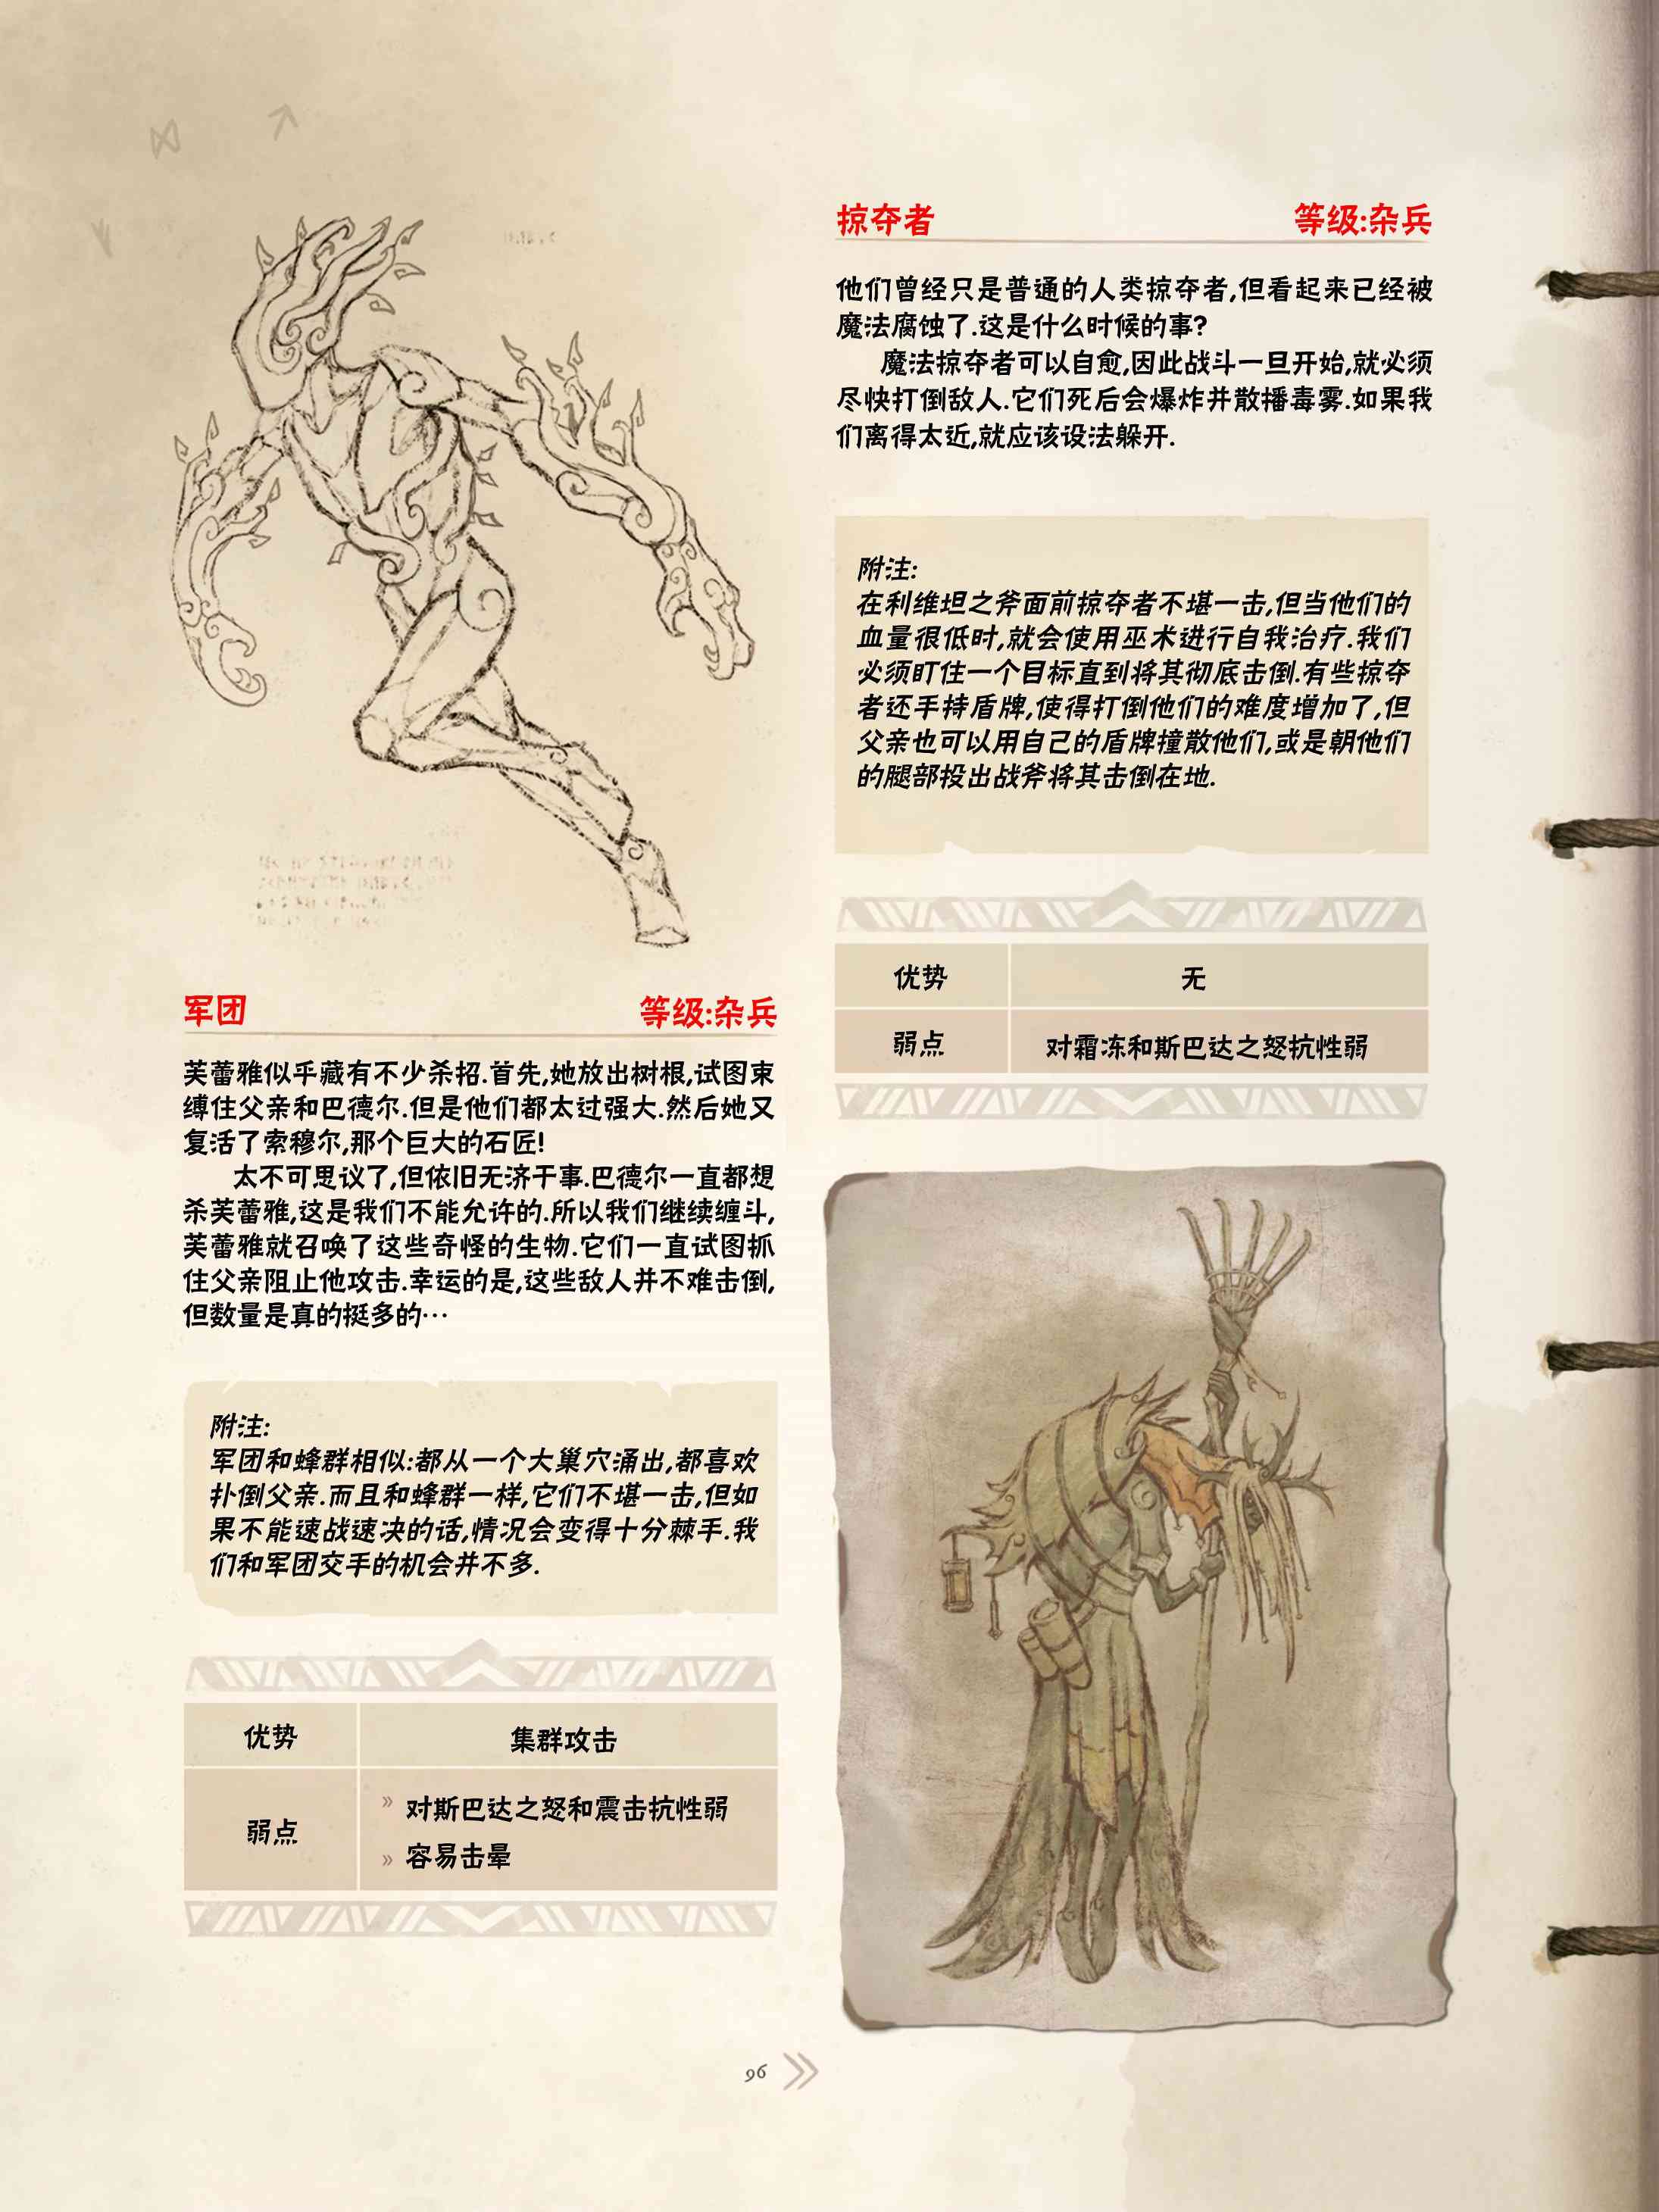 军团 等级:杂兵
芙蕾雅似乎藏有不少杀招.首先,她放出树根,试图束
缚住父亲和巴德尔.但是他们都太过强大.然后她又
复活了索穆尔,那个巨大的石匠!
太不可思议了,但依旧无济于事.巴德尔一直都想
杀芙蕾雅,这是我们不能允许的.所以我们继续缠斗,
芙蕾雅就召唤了这些奇怪的生物.它们一直试图抓
住父亲阻止他攻击.幸运的是,这些敌人并不难击倒,
但数量是真的挺多的…
附注:
军团和蜂群相似:都从一个大巢穴涌出,都喜欢
扑倒父亲.而且和蜂群一样,它们不堪一击,但如
果不能速战速决的话,情况会变得十分棘手.我
们和军团交手的机会并不多.
优势 集群攻击
弱点
» 对斯巴达之怒和震击抗性弱
» 容易击晕
掠夺者 等级:杂兵
他们曾经只是普通的人类掠夺者,但看起来已经被
魔法腐蚀了.这是什么时候的事?
魔法掠夺者可以自愈,因此战斗一旦开始,就必须
尽快打倒敌人.它们死后会爆炸并散播毒雾.如果我
们离得太近,就应该设法躲开.
附注:
在利维坦之斧面前掠夺者不堪一击,但当他们的
血量很低时,就会使用巫术进行自我治疗.我们
必须盯住一个目标直到将其彻底击倒.有些掠夺
者还手持盾牌,使得打倒他们的难度增加了,但
父亲也可以用自己的盾牌撞散他们,或是朝他们
的腿部投出战斧将其击倒在地.
优势 无
弱点 对霜冻和斯巴达之怒抗性弱
96